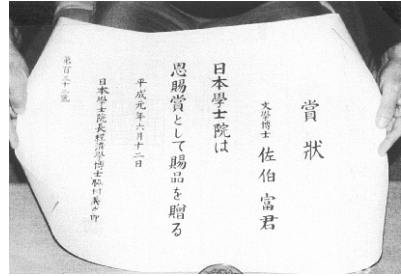 賞狀
文學博士 佐伯富君
日本學士院は
恩賜賞として賜品を贈る
平成元年六月十二日
日本學士院長經濟學博士脇村義太郎